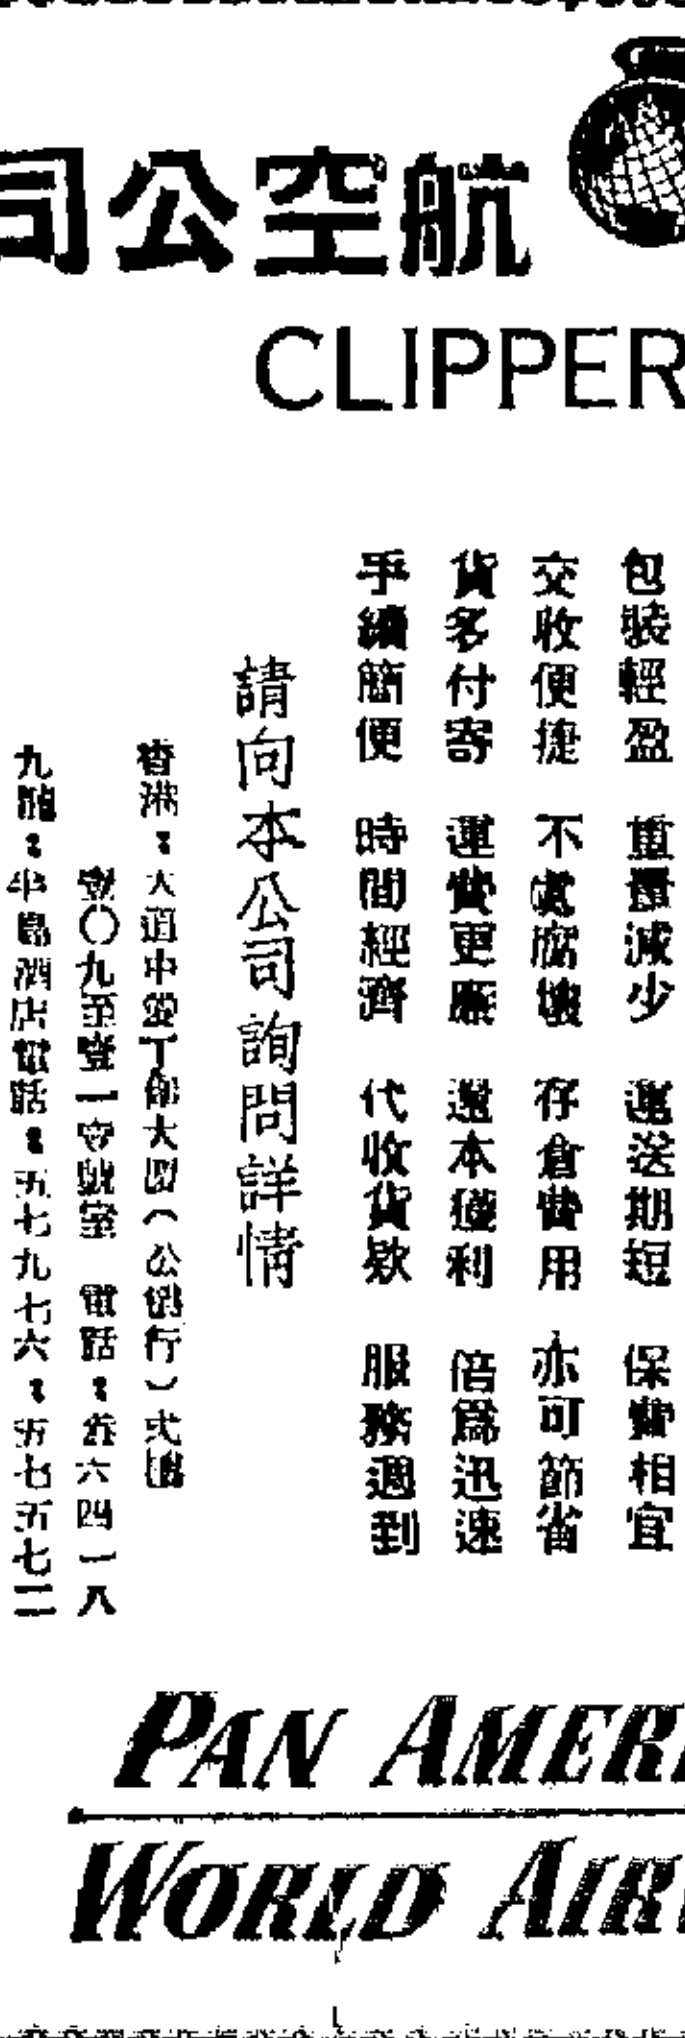 航空公司
CLIPPER
包裝輕盈 重量減少 運送期短 保費相宜
交收便捷 不處腐壞 存倉費用 亦可節省
貨多付寄 運費更廉 還本獲利 倍爲迅速
手續簡便 時間經濟 代收貨欵 服務週到
請向本公司詢問詳情
香港：大道中 丁 大 （公 行）式
壹〇九至壹一 號室 電話： 六四一八
九龍：半島酒店電話：五七九七六：五七五七二
PAN AMERI
WORLD AIR